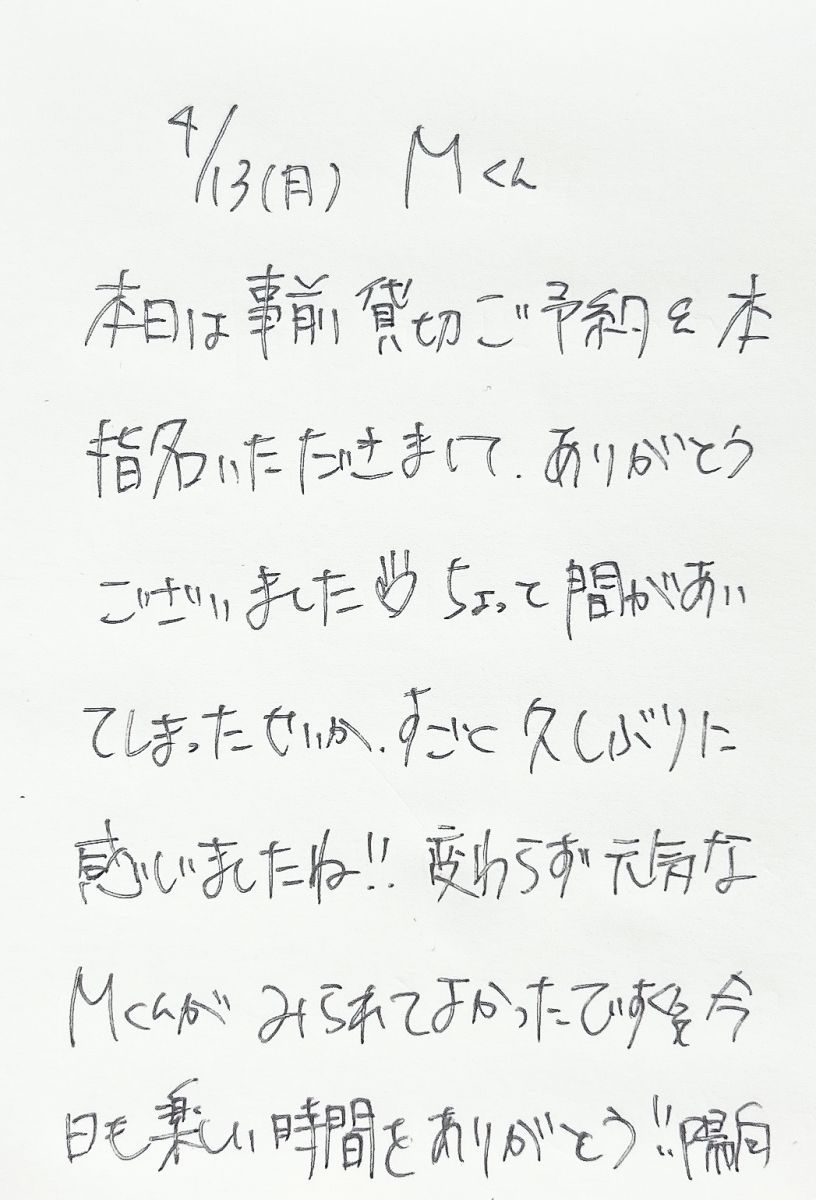 4/13(月) Mくん
本日は事前貸切ご予約を本
指名いただきまして、ありがとう
ございました ちょっと間があい
てしまったせいか、すごく久しぶりに
感じましたね!! 変わらず元気な
Mくんがみられてよかったです 今
日も楽しい時間をありがとう!! 陽向